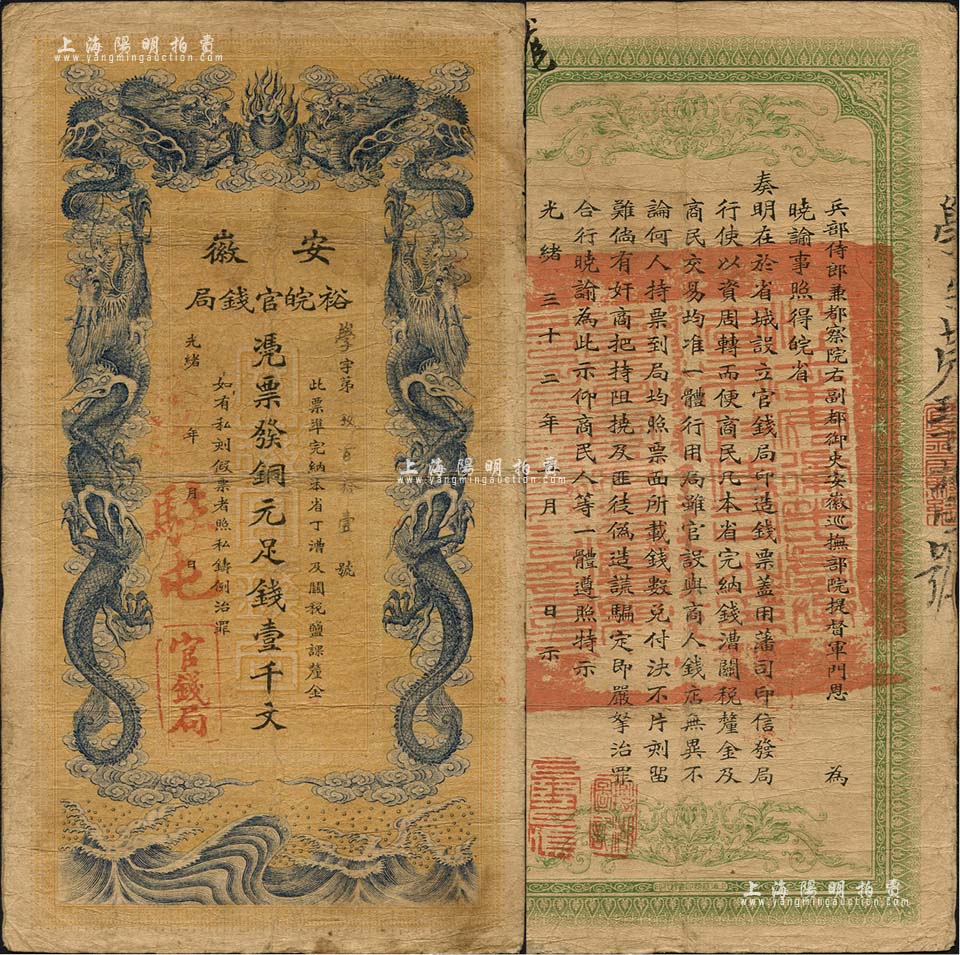 上海陽明拍賣
www.yangmingauction.com
安徽
裕皖官錢局
學字第 百 壹號
此票準完納本省丁漕及關稅鹽課釐金
憑票發銅元足錢壹千文
如有私刻假票者照私鑄例治罪
光緒 年 月 日
官錢局
上海陽明拍賣
www.yangmingauction.com
兵部侍郎兼都察院右副都御史安徽巡撫部院提督軍門恩 為
曉諭事照得皖省
奏明在於省城設立官錢局印造錢票蓋用藩司印信發局
行使以資周轉而便商民凡本省完納錢漕關稅釐金及
商民交易均准一體行用局雖官設與商人錢店無異不
論何人持票到局均照票面所載錢數兌付決不片刻留
難倘有奸商把持阻撓及匪徒偽造謊騙定即嚴拏治罪
合行曉諭為此示仰商民人等一體遵照特示
光緒三十二年 月 日示
上海陽明拍賣
www.yangmingauction.com
上海陽明拍賣
www.yangmingauction.com